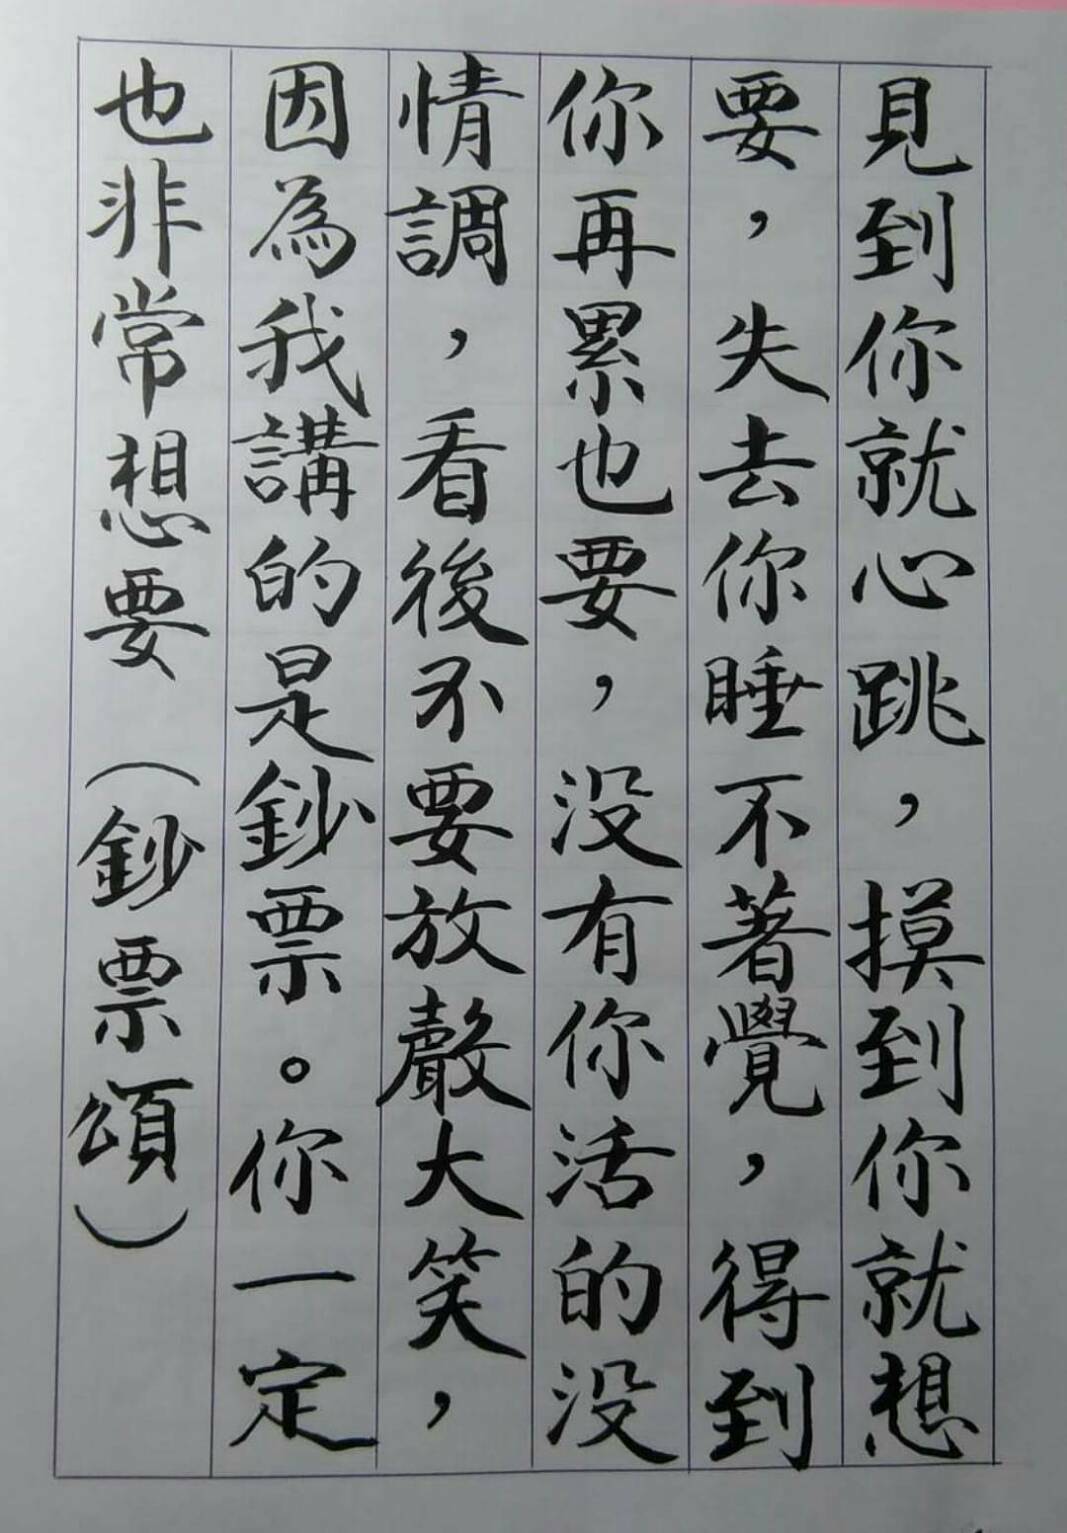 見到你就心跳，摸到你就想
要，失去你睡不著覺，得到
你再累也要，没有你活的没
情調，看後不要放聲大笑，
因為我講的是鈔票。你一定
也非常想要（鈔票頌）